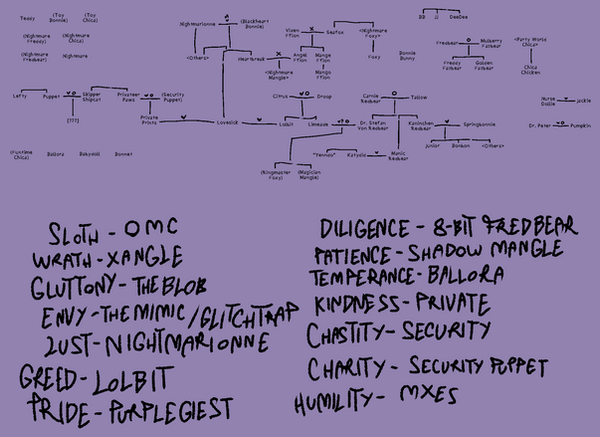 Teddy (Toy Bonnie) (Toy Chica)
(Nightmare Freddy) (Nightmare Chica)
(Nightmare Fredbear) Nightmare
Nightmarionne (Blackheart Bonnie)
<Others> Heartbreak
Vixen Ffion Seafoa
<Nightmare Foxy>
Angel Ffion Mango Ffion
<Nightmare Mangle> Mango Ffion
Bonnie Bunny
BB JJ DeeDee
Fredbear Mulberry Fatbear
Freddy Fatbear Golden Fatbear
<Party World Chica>
Chica Chicken
Lefty Puppet Skipper Shipcat Privateer Paws (Security Puppet)
[???] Private Prints Lovesick
Citrus Droop
Lolbit Limezoa
Carnie Redbear Tallow
Dr. Stefan Von Redbear Kaninchen Redbear Springbonnie
Junior Bonbon <Others>
Nurse Dollie Jackie
Dr. Peter Pumpkin
"Tennoo" Katysia Manic Redbear
(Ringmaster Foxy) (Magician Mangle)
(Funtime Chica) Ballora Babydoll Bonnet
SLOTH - OMC
WRATH - XANGLE
GLUTTONY - THE BLOB
ENVY - THE MIMIC / GLITCHTRAP
LUST - NIGHTMARIONNE
GREED - LOLBIT
PRIDE - PURPLEGIEST
DILIGENCE - 8-BIT FREDBEAR
PATIENCE - SHADOW MANGLE
TEMPERANCE - BALLORA
KINDNESS - PRIVATE
CHASTITY - SECURITY
CHARITY - SECURITY PUPPET
HUMILITY - MXES